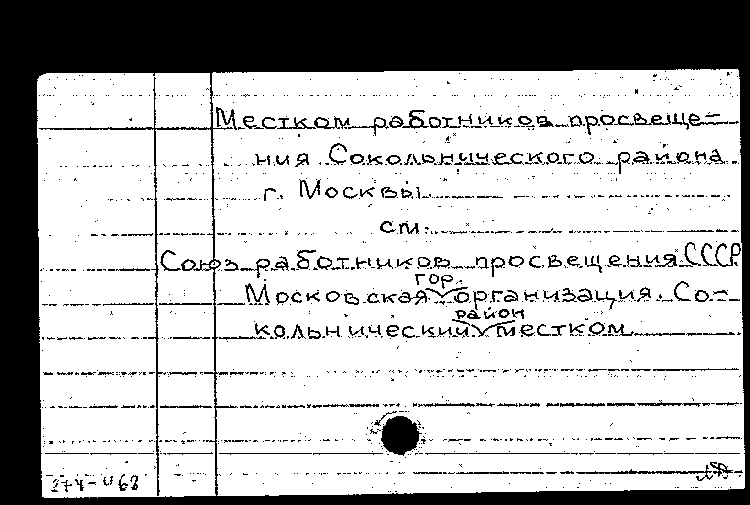 Местком работников просвеще-
ния Сокольнического района
г. Москвы
см.
Союз работников просвещения СССР
гор.
Московская организация. Со-
район
кольнический местком.